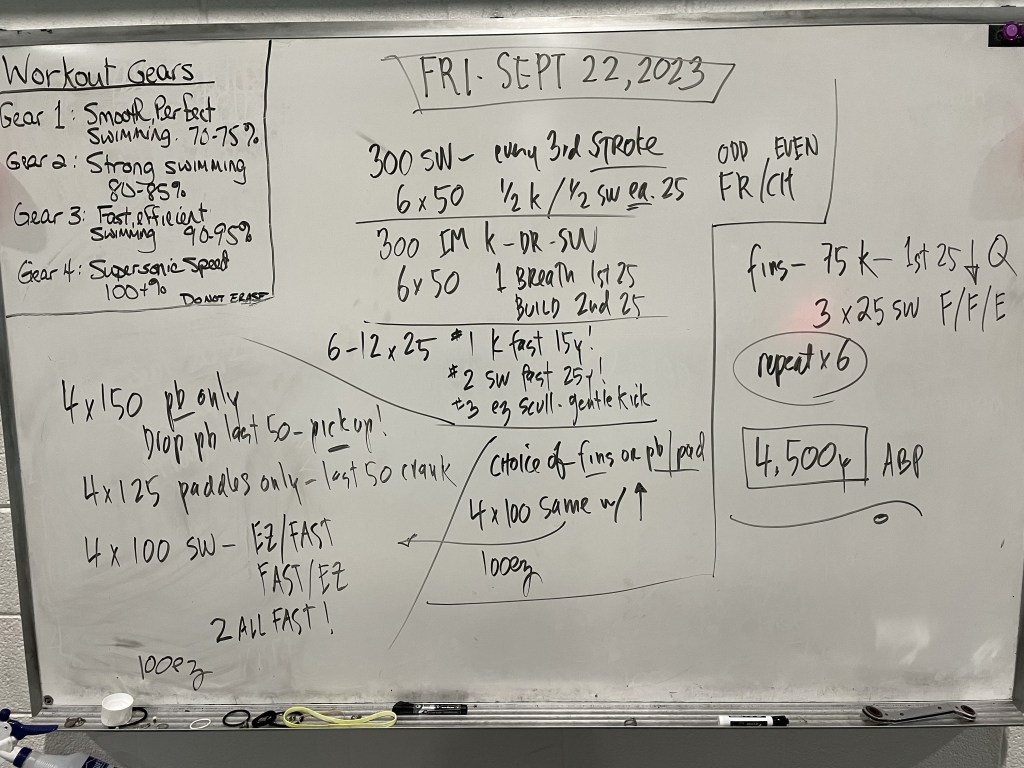 Workout Gears
Gear 1: Smooth, Perfect
Swimming. 70-75%
Gear 2: Strong swimming
80-85%
Gear 3: Fast, efficient
Swimming 90-95%
Gear 4: Supersonic Speed
100+%
DO NOT ERASE
FRI. SEPT 22, 2023
300 SW - every 3rd STROKE
6 x 50 ½ k / ½ SW ea. 25
ODD EVEN
FR/CH
300 IM K-DR-SW
6 x 50 1 Breath 1st 25
BUILD 2nd 25
6-12 x 25 #1 k fast 15y!
#2 SW fast 25y!
#3 ez scull-gentle kick
4 x 150 pb only
Drop pb last 50 - pickup!
4 x 125 paddles only - last 50 crank
4 x 100 SW - EZ/FAST
FAST/EZ
2 ALL FAST!
100ez
Choice of fins or pb/pad
4 x 100 same w/ ↑
100ez
fins - 75 k - 1st 25 ↓ Q
3 x 25 SW F/F/E
repeat x 6
4,500y ABP